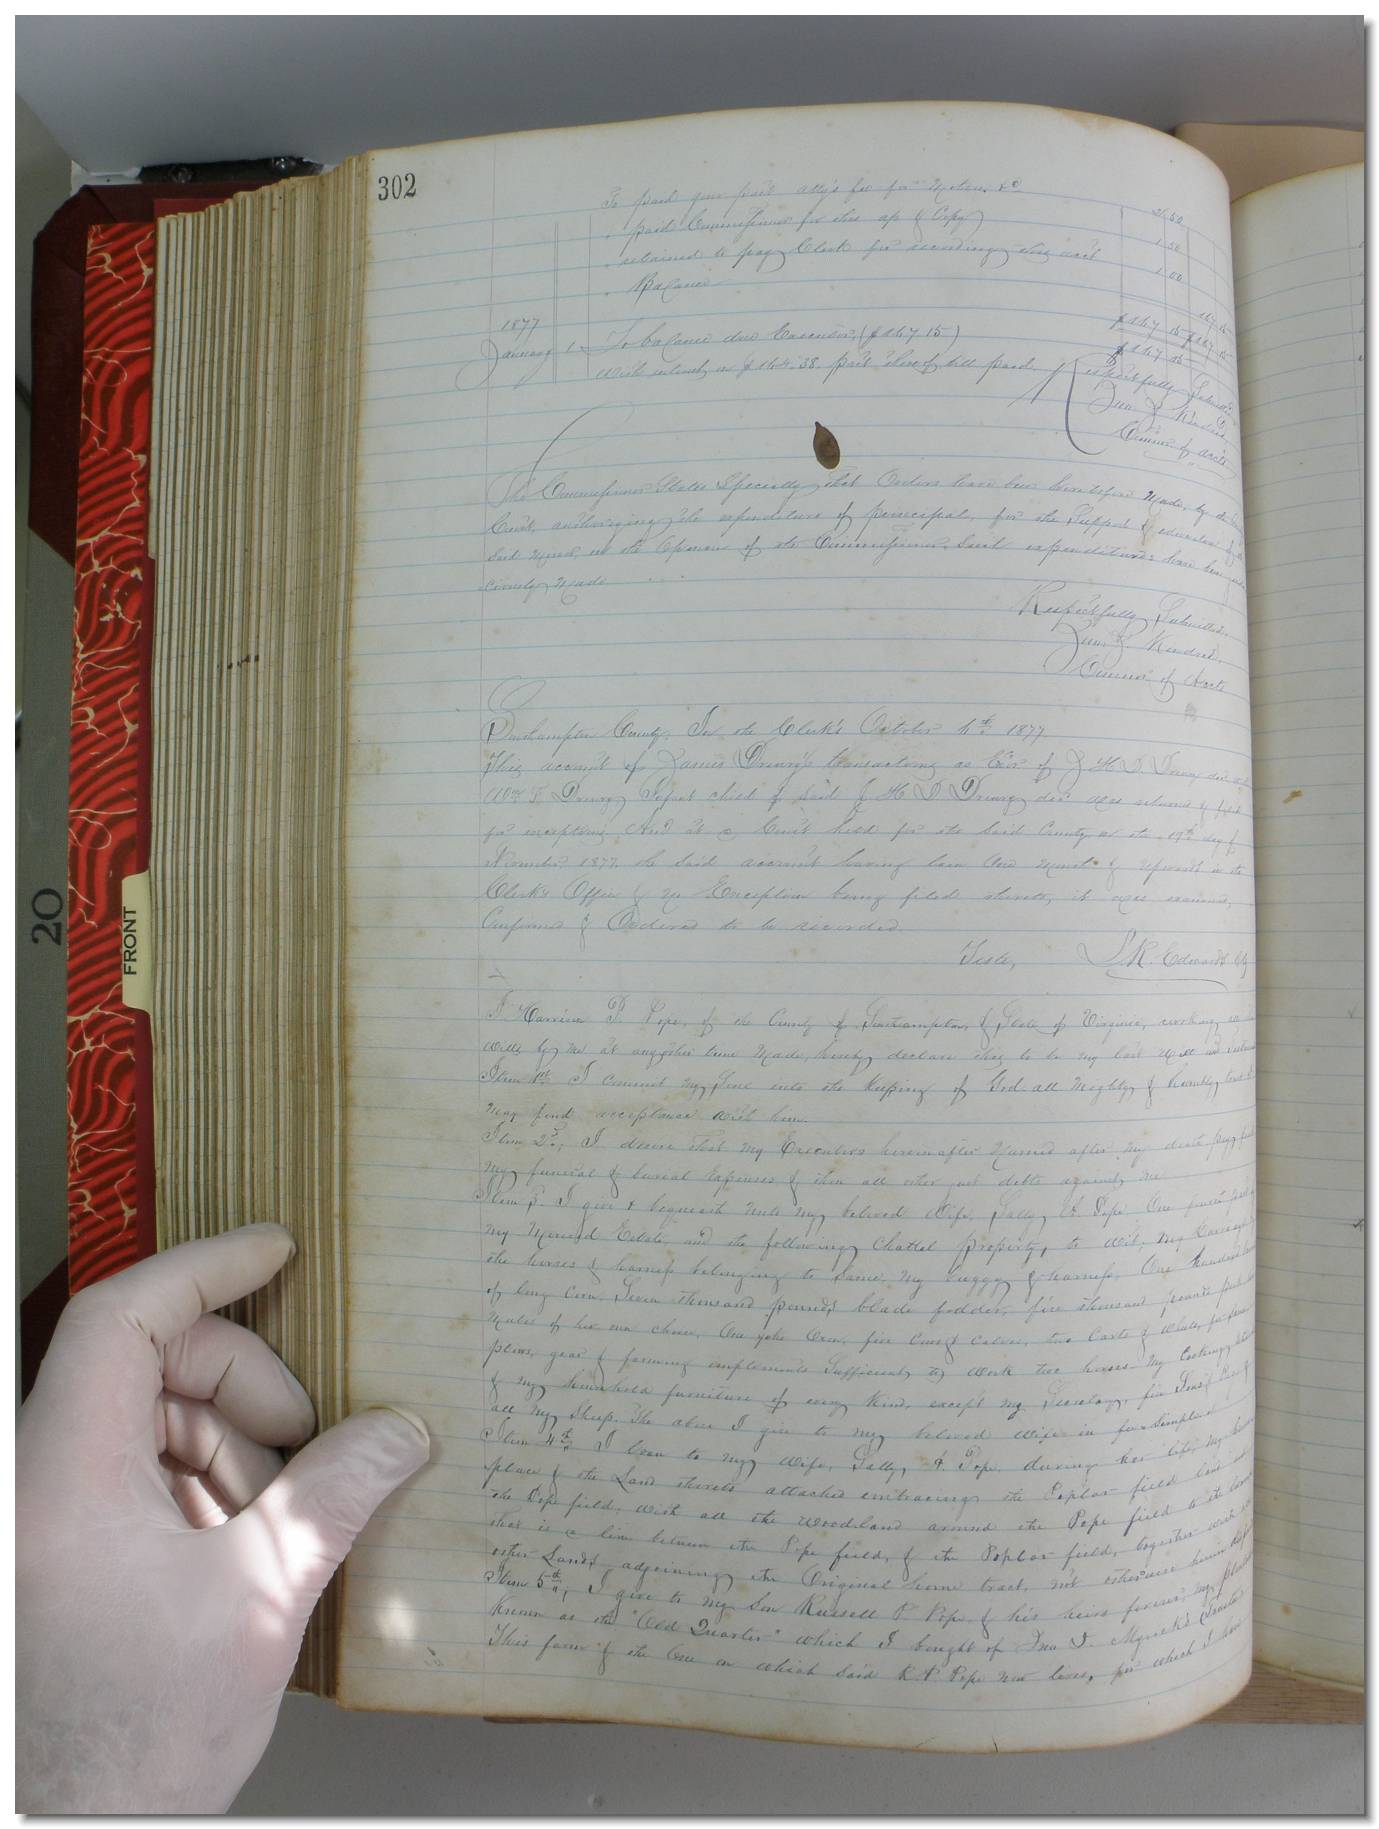 302
To paid your paid atty's fee for Motion, &c 2 50
" paid Commissioner for this a/c & Copy 1 50
" retained to pay Clerk for recording this acct 1 00
" Balance 167 15
$167 15 $167 15
1877
January 1 To balance due Executor, ($167 15) $167 15
With interest on $164.38 part thereof till paid.
Respectfully Submitted
Kindred,
Commr of Accts
The Commissioner States Specially, that Orders have been heretofore Made, by the
Court, authorizing the expenditure of principal, for the Support & education of
Said in the Opinion of the Commissioner, Said expenditures have been
Made
Respectfully Submitted,
Kindred,
Commr of Accts
Southampton County, In the Clerk's October 4th 1877
This account of James Drewry's transactions as Exor of J H D Drewry decd
F. Drewry Infant child of Said J H D Drewry decd was returned & filed
for exceptions, And at a Court held for the Said County on the 19th day of
November 1877, the Said account having lain One Month & upwards in the
Clerk's Office & no Exception being filed thereto, it was examined,
Confirmed & Ordered to be recorded
Teste, L. R. Edwards Clk
I Harrison P. Pope, of the County of Southampton, & State of Virginia, revoking
Wills by Me at any other time Made, hereby declare this to be my last Will and
Item 1st I commit my Soul into the Keeping of God all Mighty & humbly trust
May find acceptance with him.
Item 2d, I desire that my Executors hereinafter Named after my death pay
my funeral & burial Expenses & then all other just debts against me
Item 3. I give & bequeath unto my beloved Wife, Sally Pope. One fourth part
My Moneied Estate, and the following Chattel property, to Wit, my Carriage
the horses & harness belonging to Same, My buggy & harness, One hundred
of long Corn, Seven thousand pounds blade fodder, five thousand pounds
Mules of her own choice, One yoke Oxen, five Cows & Calves, two Carts & Wheels,
plows, gear & farming implements Sufficient to work two horses My Cooking
& my household furniture of every Kind, except my Secretary,
all My Sheep. The above I give to my beloved Wife in fee simple
Item 4th I loan to my Wife, Sally, Pope, during her life, my
place & the Land thereto attached embracing the Poplar field
the Pope field, With all the Woodland around the Pope field to the
that is a line between the Pope field, & the Poplar field, together with
other Lands adjoining the Original home tract, not otherwise
Item 5th, I give to my Son Russell P Pope, & his heirs forever, my
Known as the "Old Quarter" which I bought of Jno Myrick's
This farm & the One on which Said R. P Pope now lives, for which I have
FRONT
20